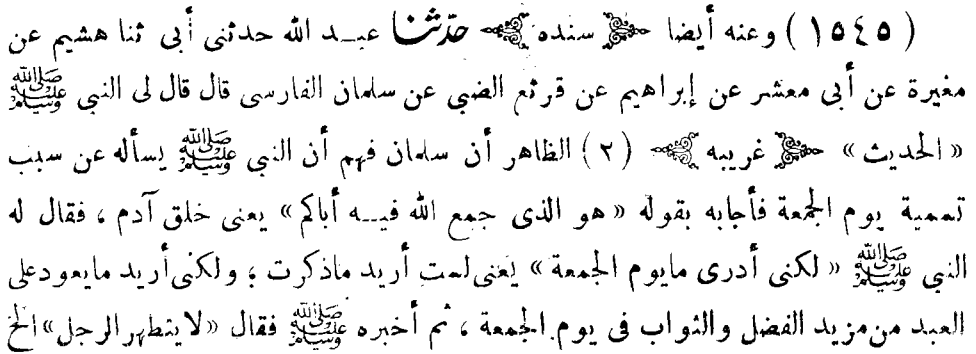 ( ١٥٤٥ ) وعنه أيضا ﴿ سنده ﴾ حدّثنا عبد الله حدثنى أبى ثنا هشيم عن
مغيرة عن أبى معشر عن إبراهيم عن قرثع الضبى عن سلمان الفارسى قال قال لى النبى ﷺ
« الحديث » ﴿ غريبه ﴾ (٢) الظاهر أن سلمان فهم أن النبى ﷺ يسأله عن سبب
تسمية يوم الجمعة فأجابه بقوله « هو الذى جمع الله فيه أباكم » يعنى خلق آدم ، فقال له
النبى ﷺ « لكنى أدرى مايوم الجمعة » يعنى لست أريد ماذكرت ؛ ولكنى أريد مايعود على
العبد من مزيد الفضل والثواب فى يوم الجمعة ، ثم أخبره ﷺ فقال « لا يتطهر الرجل » الخ